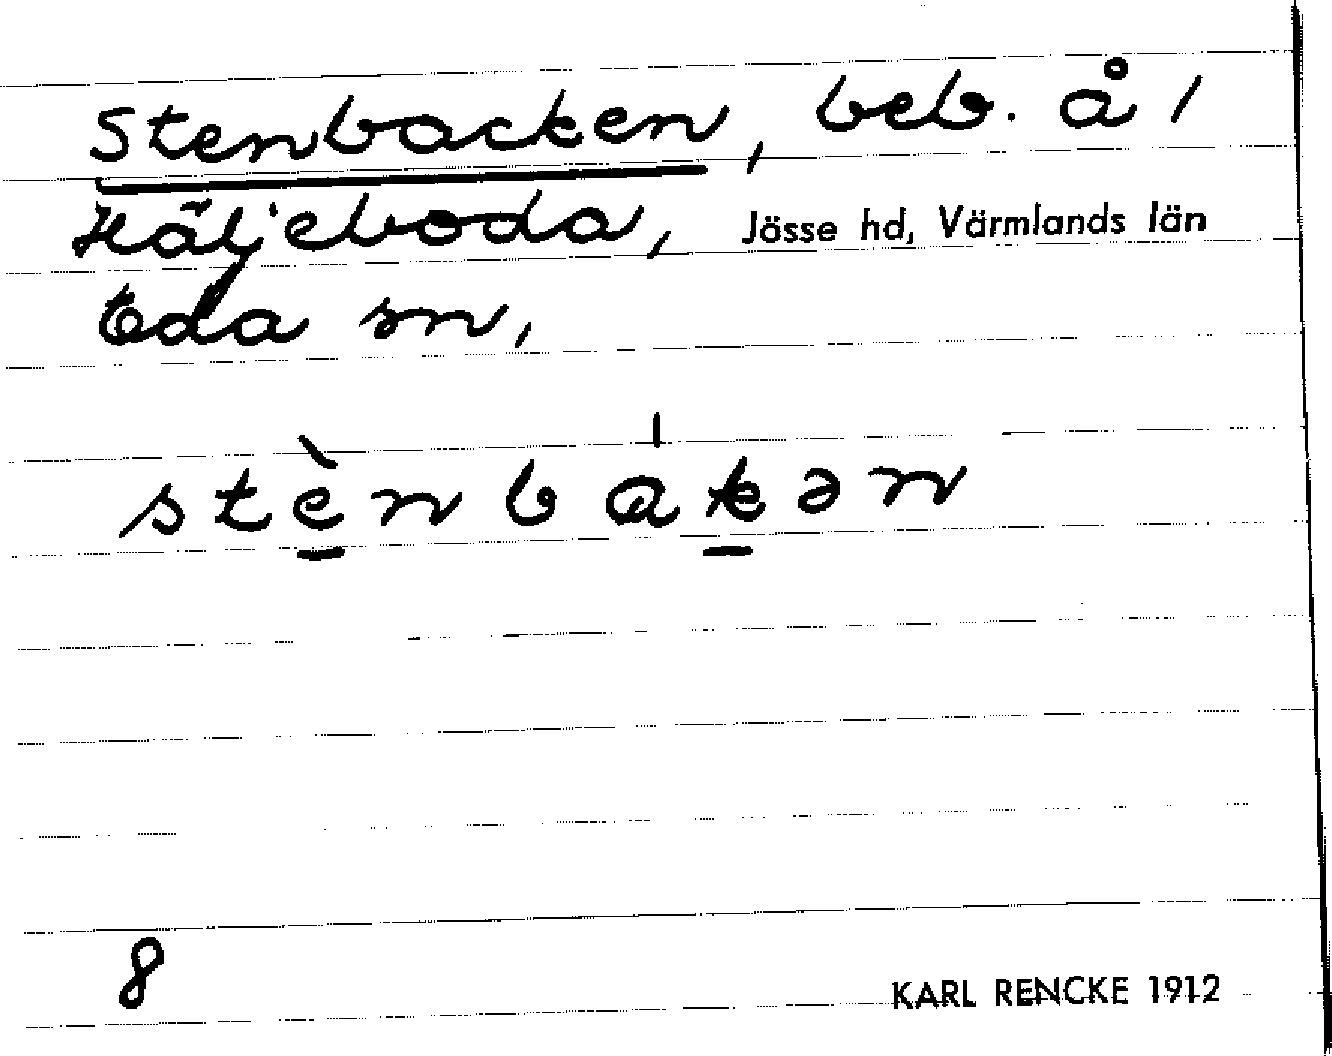 Stenbacken, beb. å /
Häljeboda, Jösse hd, Värmlands län
Eda sn,
stè̱nbáḵən
8
KARL RENCKE 1912